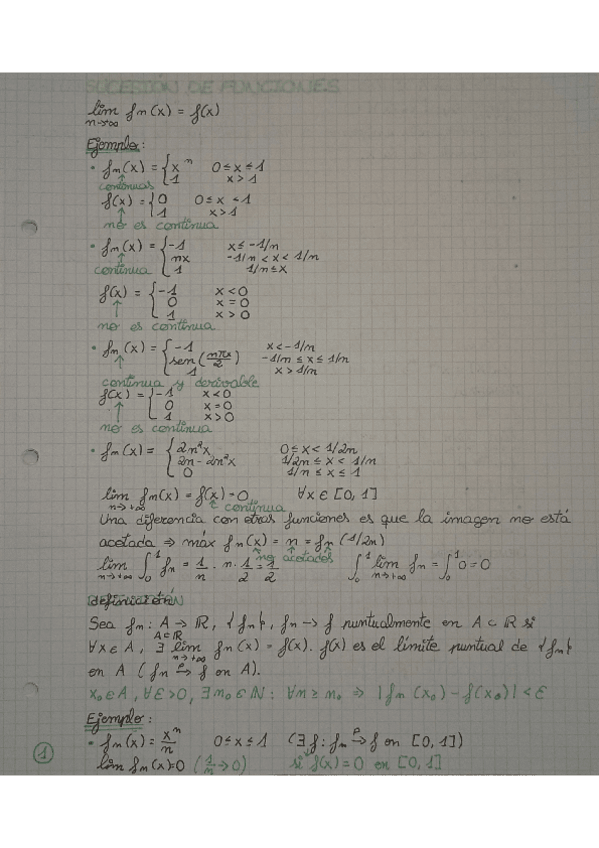 SUCESIÓN DE FUNCIONES
lim fn(x) = f(x)
n→∞
Ejemplo:
• fn(x) = { x^n   0≤x≤1
1   x>1
continuas
f(x) = { 0   0≤x<1
1   x>1
no es continua
• fn(x) = { -1   x≤-1/n
nx   -1/n<x<1/n
1   1/n≤x
continua
f(x) = { -1   x<0
0   x=0
1   x>0
no es continua
• fn(x) = { -1   x<-1/n
sen(nπx/2)   -1/n≤x≤1/n
1   x>1/n
continua y derivable
f(x) = { -1   x<0
0   x=0
1   x>0
no es continua
• fn(x) = { 2n²x   0≤x<1/2n
2n-2n²x   1/2n≤x<1/n
0   1/n≤x≤1
lim fn(x) = f(x)=0   ∀x∈[0,1]
n→+∞
continua
Una diferencia con otras funciones es que la imagen no está
acotada ⇒ máx fn(x) = n = fn(1/2n)
no acotadas
lim ∫₀¹ fn = 1/n · n · 1/2 = 1/2   ∫₀¹ lim fn = ∫₀¹ 0 = 0
n→+∞   n→+∞
definición
Sea fn: A → ℝ, {fn}, fn → f puntualmente en A⊂ℝ si
A⊂ℝ
∀x∈A, ∃ lim fn(x) = f(x). f(x) es el límite puntual de {fn}
n→+∞
en A (fn →^p f en A).
x₀∈A, ∀ε>0, ∃n₀∈ℕ: ∀n≥n₀ ⇒ |fn(x₀)-f(x₀)|<ε
Ejemplo:
• fn(x) = x^n/n   0≤x≤1   (∃f: fn →^p f en [0,1])
lim fn(x)=0 (1/n→0)   si f(x)=0 en [0,1]
n→+∞
1